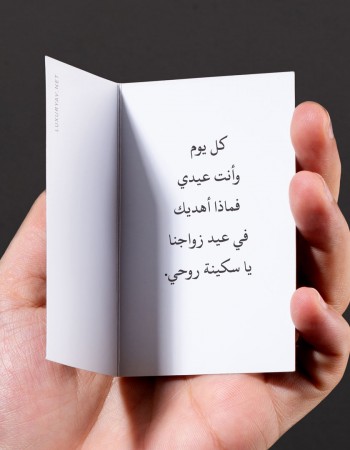 كل يوم
وأنت عيدي
فماذا أهديك
في عيد زواجنا
يا سكينة روحي.
LUXURYAY.NET